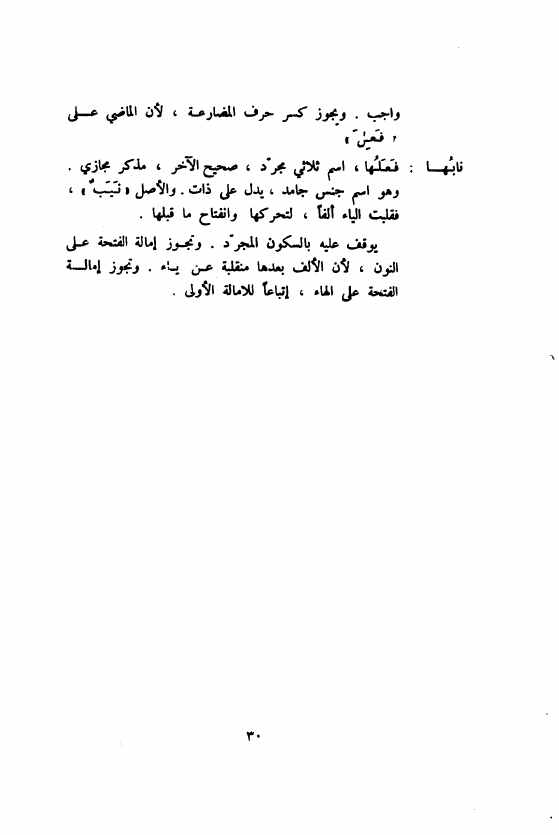 واجب . ويجوز كسر حرف المضارعة ، لأن الماضي عـــلى
« فَعِلَ »
نابُهـــا : فَعَلُها ، اسم ثلاثي مجرّد ، صحيح الآخر ، مذكر مجازي .
وهو اسم جنس جامد ، يدل على ذات . والأصل « نَيَبٌ » ،
فقلبت الياء ألفاً ، لتحركها وانفتاح ما قبلها .
يوقف عليه بالسكون المجرّد . وتجـوز إمالة الفتحة عـلى
النون ، لأن الألف بعدها منقلبة عـن يـاء . وتجوز إمالـــة
الفتحة على الهاء ، إتباعاً للامالة الأولى .
٣٠